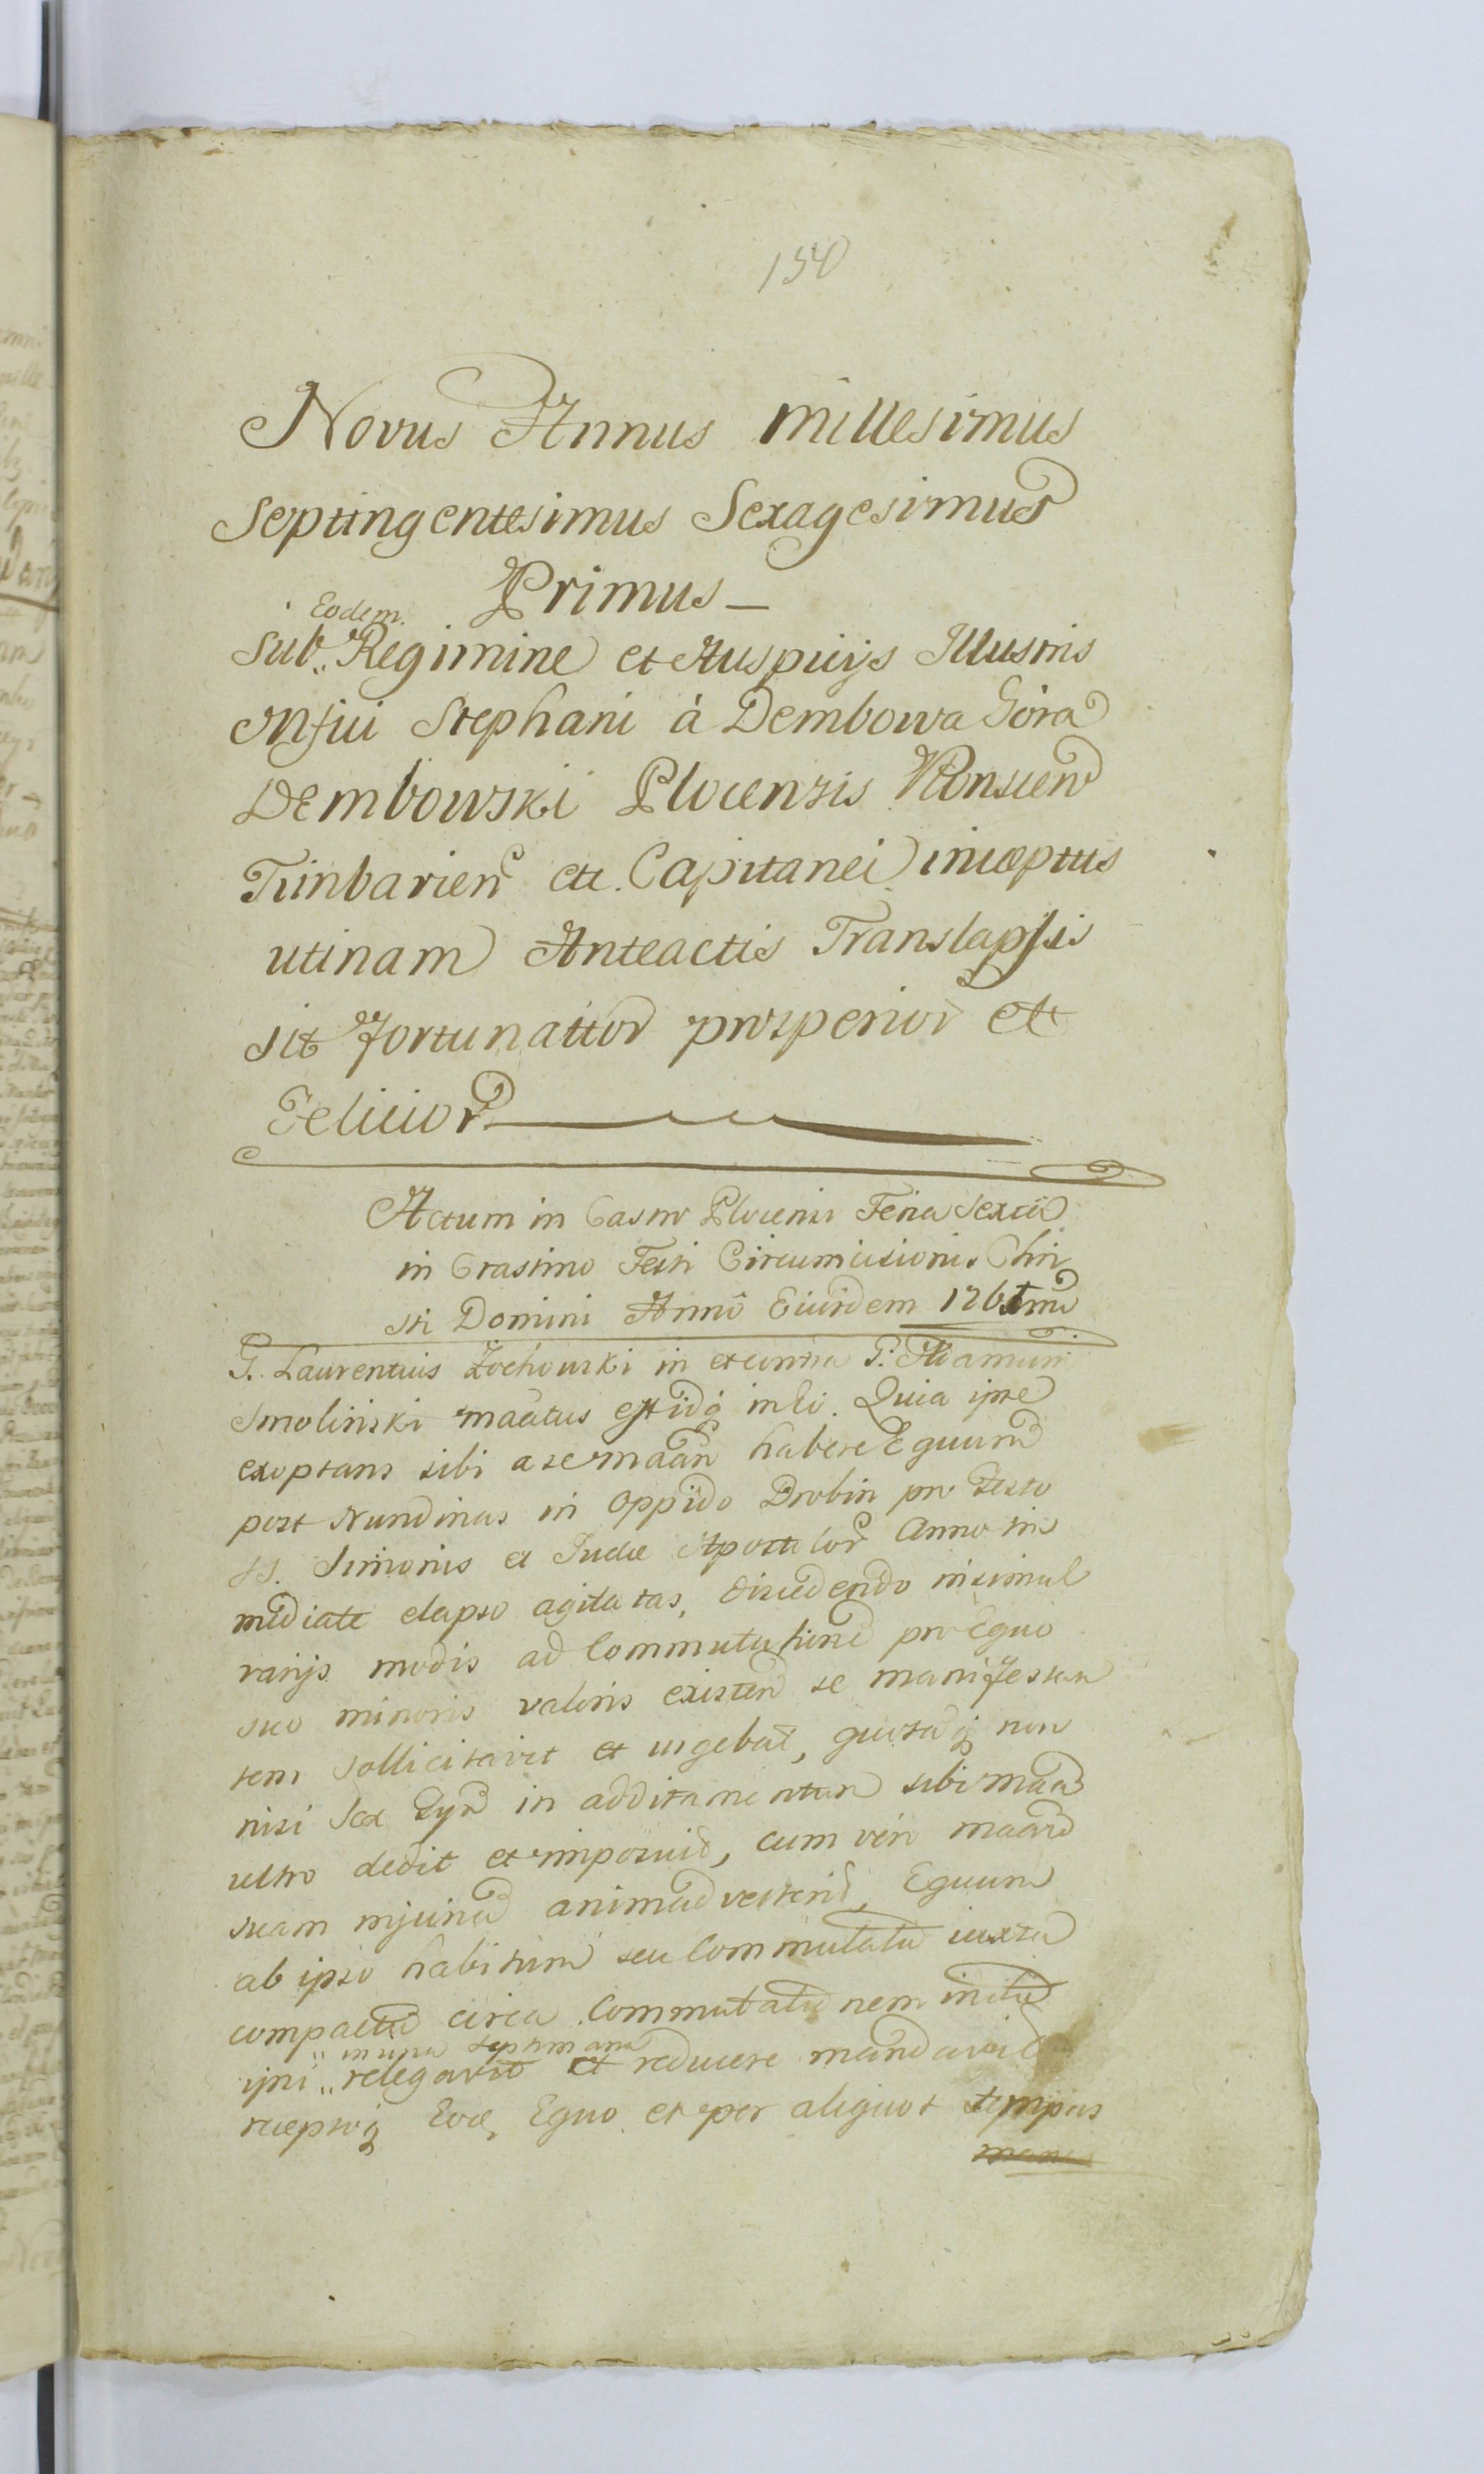 150
Novus Annus millesimus
Septingentesimus Sexagesimus
Primus
Eodem
Sub Regimine et Auspicijs Illustris
Mfici Stephani à Dembowa Góra
Dembowski Plocensis Wonscen
Timbarien etc. Capitanei inceptus
utinam Anteactis Translapsis
sit Fortunatior prosperior et
Felicior
Actum in Castro Plocensi Feria Sexta
in Crastino Festi Circumcisionis Chri
sti Domini Anno Eiusdem 1761mo
G. Laurentius Zochowski in et contra G. Adamum
Smolinski maãtus est idq in eo. Quia ipse
exoptans sibi a se maãn habere Equum
post Nundinas in Oppido Drobin pro Festo
SS. Simonis et Judæ Apostolor Anno im
mediate elapso agitatas, discedendo insimul
varijs modis ad Commutationē pro Equo
suo minoris valoris existen se manifestan
tem sollicitavit et urgebat, non
nisi Sex in additamentum sibi maãn
ultro dedit et imposuit, cum vero maãns
suam injuriã animadverterit, Equum
ab ipso habitum seu Commutatũ iuxta
compactũ circa Commutationem initũ
in una Septimana
ipsi relegavit et reducere mandavit
receptoq Eoē Equo et per aliquot tempus